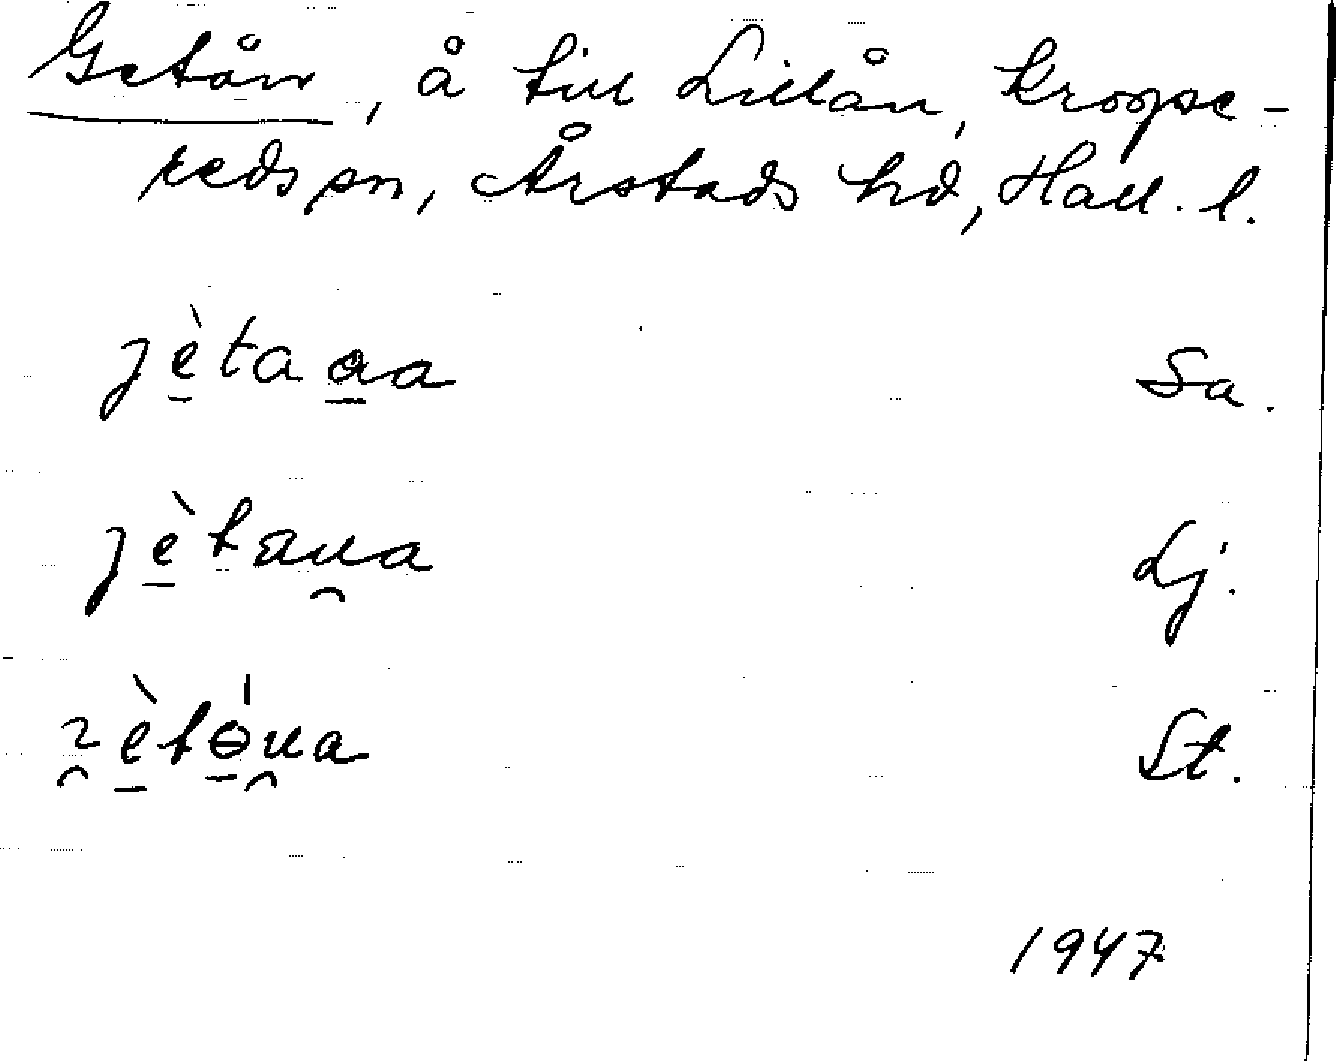 Getån, å till Lillån, Kroppe-
reds sn, Årstads hd, Hall. l.
jètaaa Sa.
jètaua Lj.
Lt.
1947